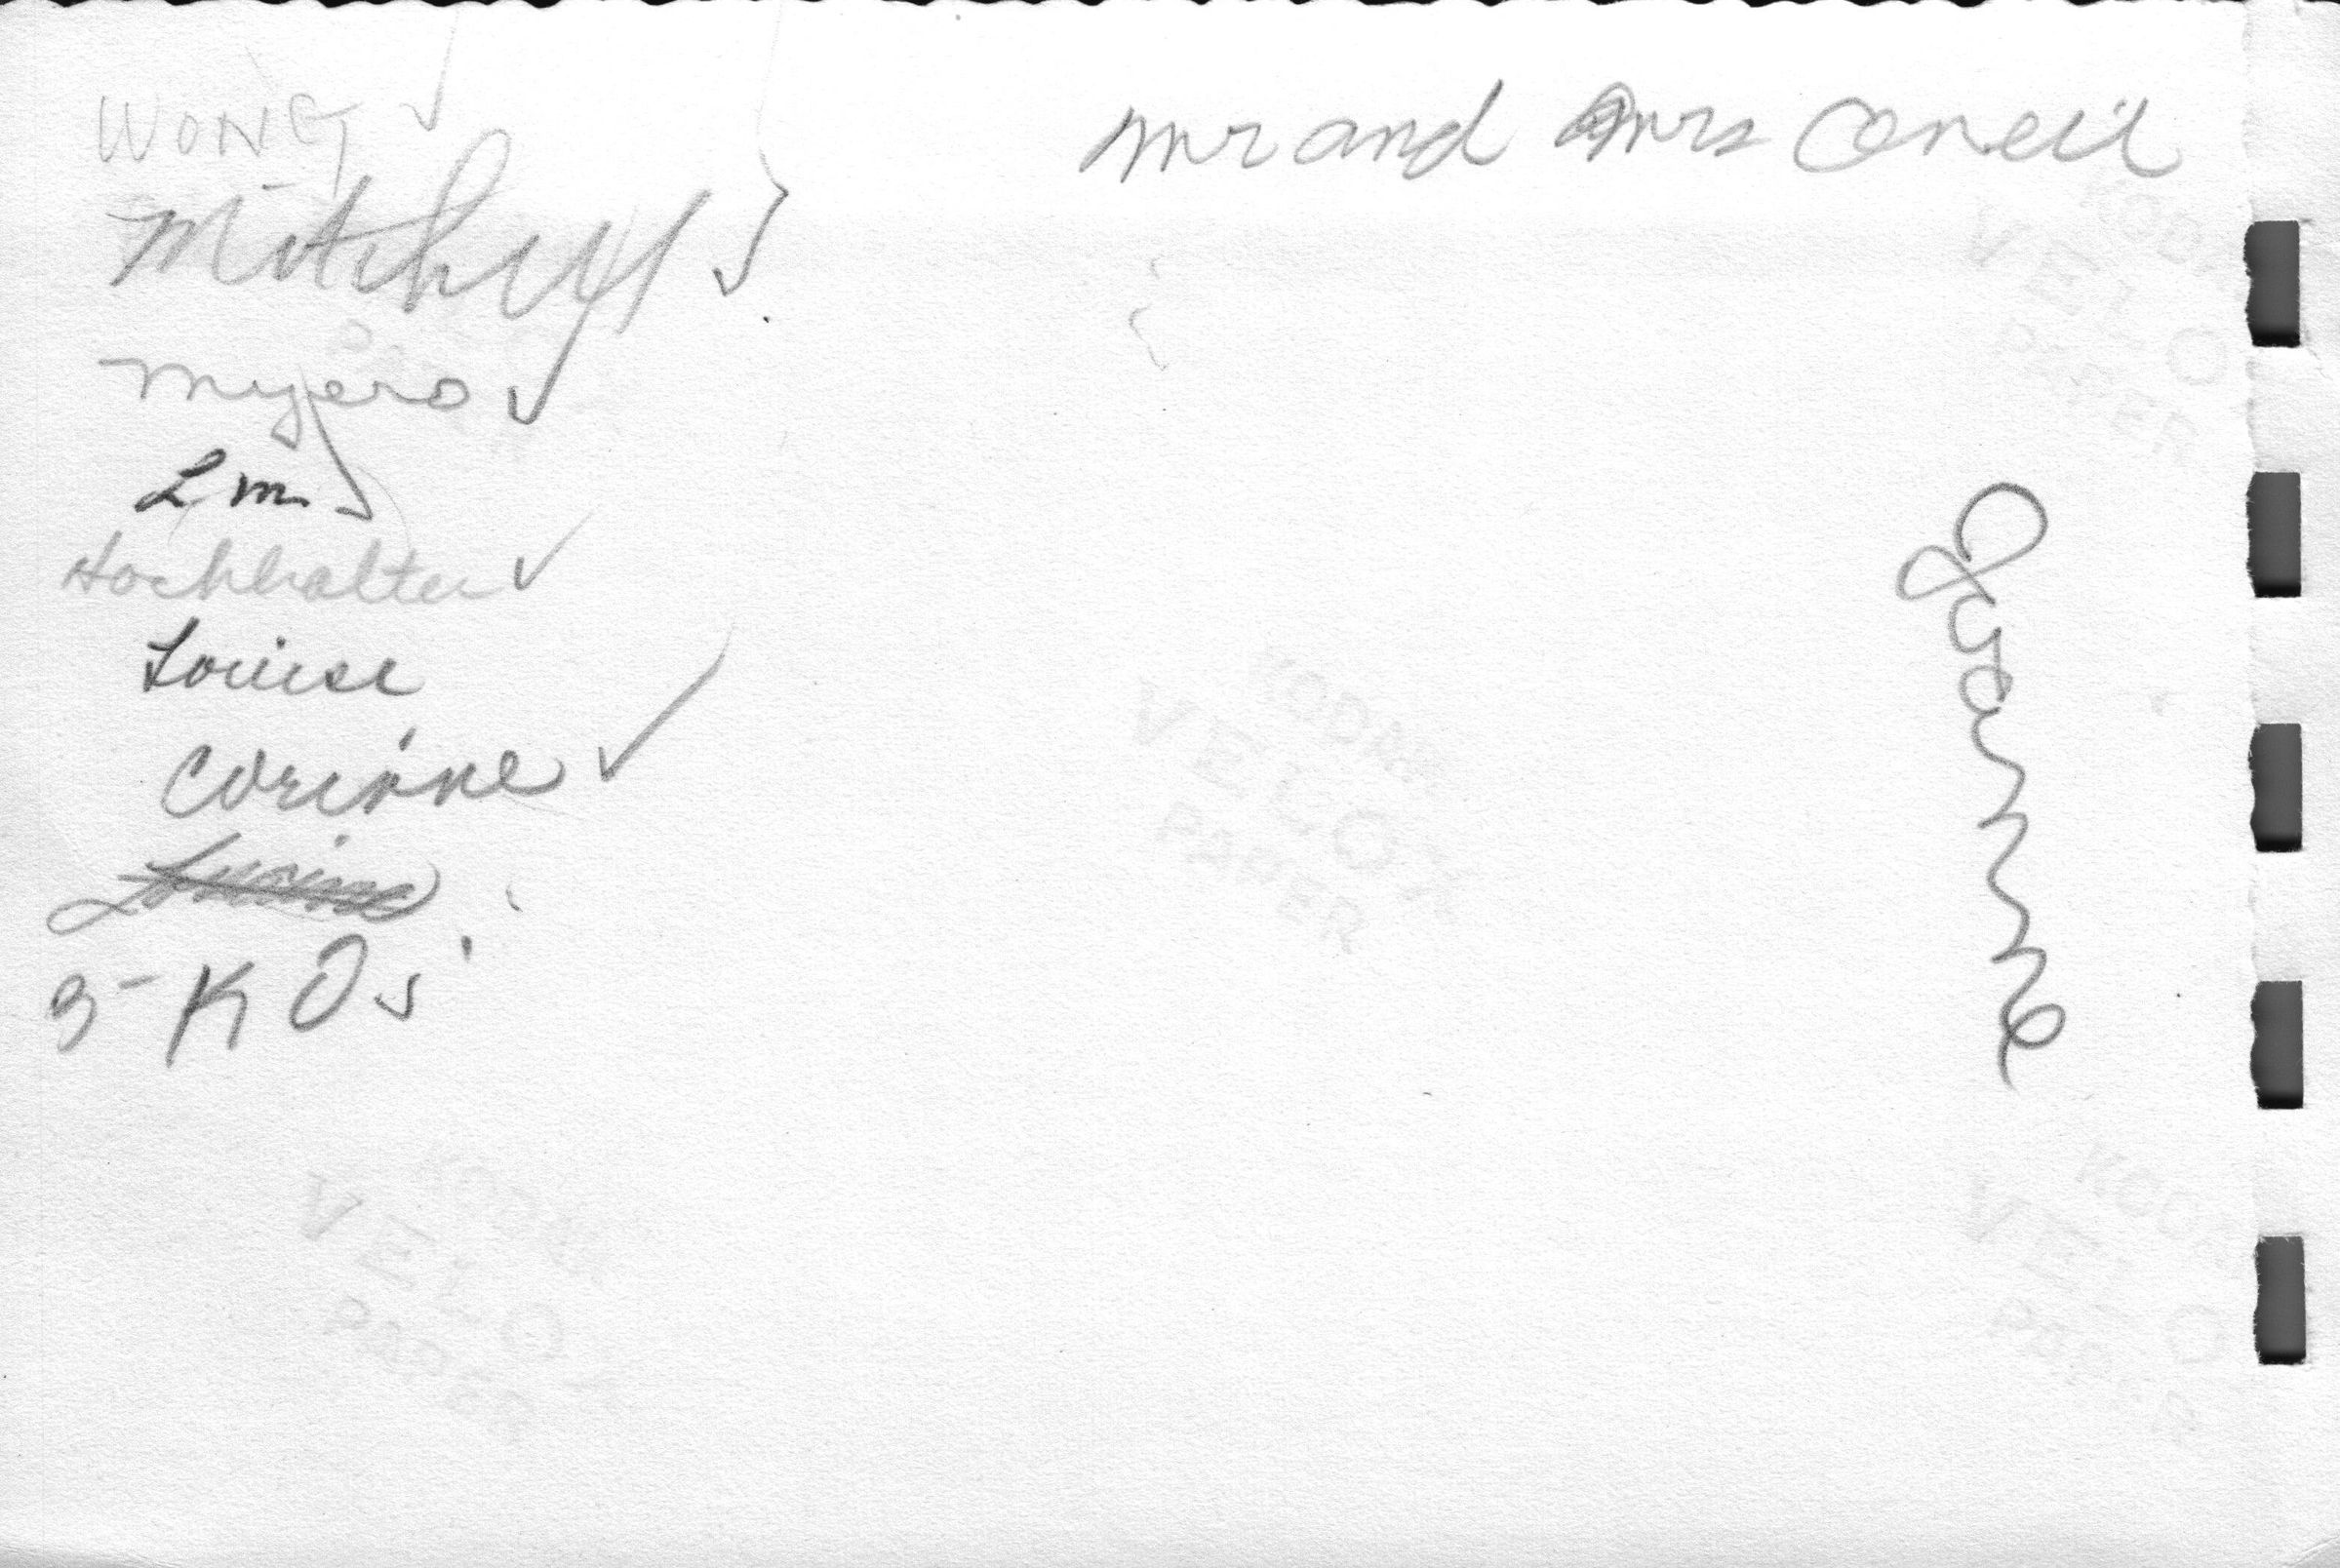 WONG ✓
Mitchyl ✓
Myers ✓
L m ✓
Hochhalter ✓
Louise
Corinne ✓
3 - K Os
Mr and Mrs Oneil
Joanne
KODAK
VELOX
PAPER
KODAK
VELOX
PAPER
KODAK
VELOX
PAPER
KODAK
VELOX
PAPER